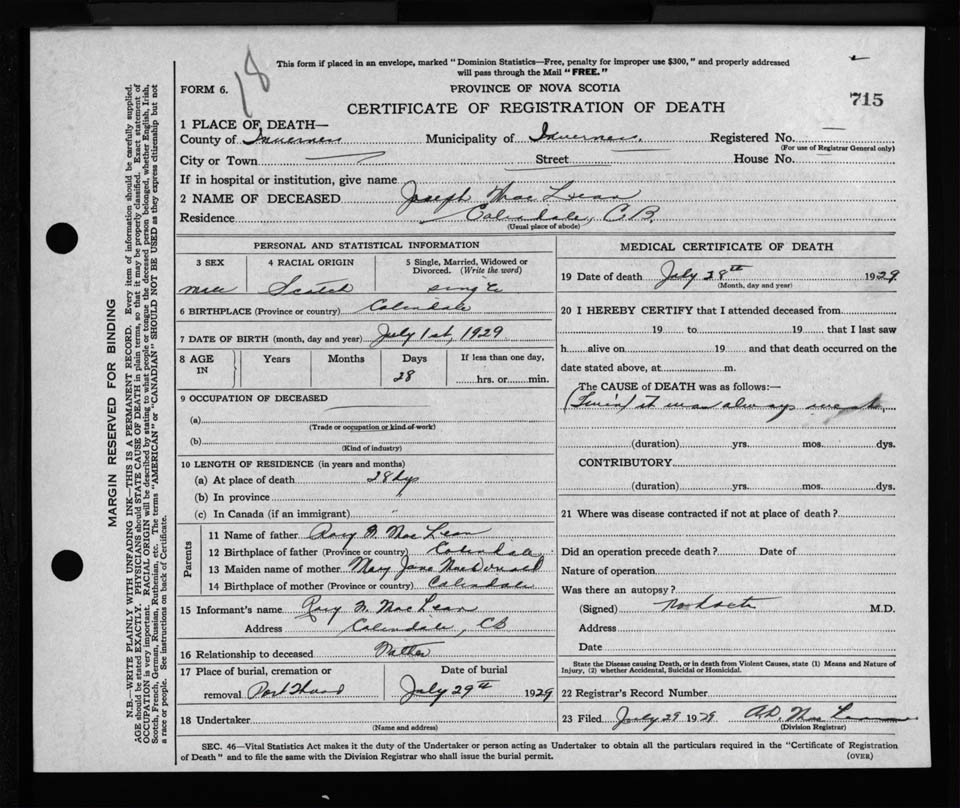 18
This form if placed in an envelope, marked "Dominion Statistics—Free, penalty for improper use $300," and properly addressed
will pass through the Mail "FREE."
FORM 6.
PROVINCE OF NOVA SCOTIA
CERTIFICATE OF REGISTRATION OF DEATH
715
1 PLACE OF DEATH—
County of Inverness Municipality of Inverness. Registered No.
(For use of Registrar General only)
City or Town Street House No.
If in hospital or institution, give name
2 NAME OF DECEASED Joseph MacLean
Residence Colindale, C.B.
(Usual place of abode)
PERSONAL AND STATISTICAL INFORMATION
3 SEX 4 RACIAL ORIGIN 5 Single, Married, Widowed or Divorced. (Write the word)
Male Scotch Single
6 BIRTHPLACE (Province or country) Colindale
7 DATE OF BIRTH (month, day and year) July 1st, 1929
8 AGE IN Years Months Days If less than one day,
28 hrs. or min.
9 OCCUPATION OF DECEASED
(a)
(Trade or occupation or kind of work)
(b)
(Kind of industry)
10 LENGTH OF RESIDENCE (in years and months)
(a) At place of death 28 dys
(b) In province
(c) In Canada (if an immigrant) "
Parents
11 Name of father Rory MacLean
12 Birthplace of father (Province or country) Colindale
13 Maiden name of mother Mary Jane MacDonald
14 Birthplace of mother (Province or country) Colindale
15 Informant's name Rory MacLean
Address Colindale, CB
16 Relationship to deceased Father
17 Place of burial, cremation or Date of burial
removal Port Hood July 29th 1929
18 Undertaker
(Name and address)
MEDICAL CERTIFICATE OF DEATH
19 Date of death July 28th 1929
(Month, day and year)
20 I HEREBY CERTIFY that I attended deceased from
19 to 19 that I last saw
h alive on 19 and that death occurred on the
date stated above, at m.
The CAUSE of DEATH was as follows:—
(Twin) it was always weak
(duration) yrs. mos. dys.
CONTRIBUTORY
(duration) yrs. mos. dys.
21 Where was disease contracted if not at place of death?
Did an operation precede death? Date of
Nature of operation
Was there an autopsy?
(Signed) No doctor M.D.
Address
Date
State the Disease causing Death, or in death from Violent Causes, state (1) Means and Nature of
Injury, (2) whether Accidental, Suicidal or Homicidal.
22 Registrar's Record Number
23 Filed July 29 1929 A.D. MacLean
(Division Registrar)
SEC. 46—Vital Statistics Act makes it the duty of the Undertaker or person acting as Undertaker to obtain all the particulars required in the "Certificate of Registration
of Death" and to file the same with the Division Registrar who shall issue the burial permit.
(OVER)
MARGIN RESERVED FOR BINDING
N.B.—WRITE PLAINLY WITH UNFADING INK—THIS IS A PERMANENT RECORD. Every item of information should be carefully supplied.
AGE should be stated EXACTLY. PHYSICIANS should STATE CAUSE OF DEATH in plain terms, so that it may be properly classified. Exact statement of
OCCUPATION is very important. RACIAL ORIGIN will be described by stating to what people or tongue the deceased person belonged, whether English, Irish,
Scotch, French, German, Russian, Ruthenian, etc. The terms "AMERICAN" or "CANADIAN" SHOULD NOT BE USED as they express citizenship but not
a race or people. See instructions on back of Certificate.